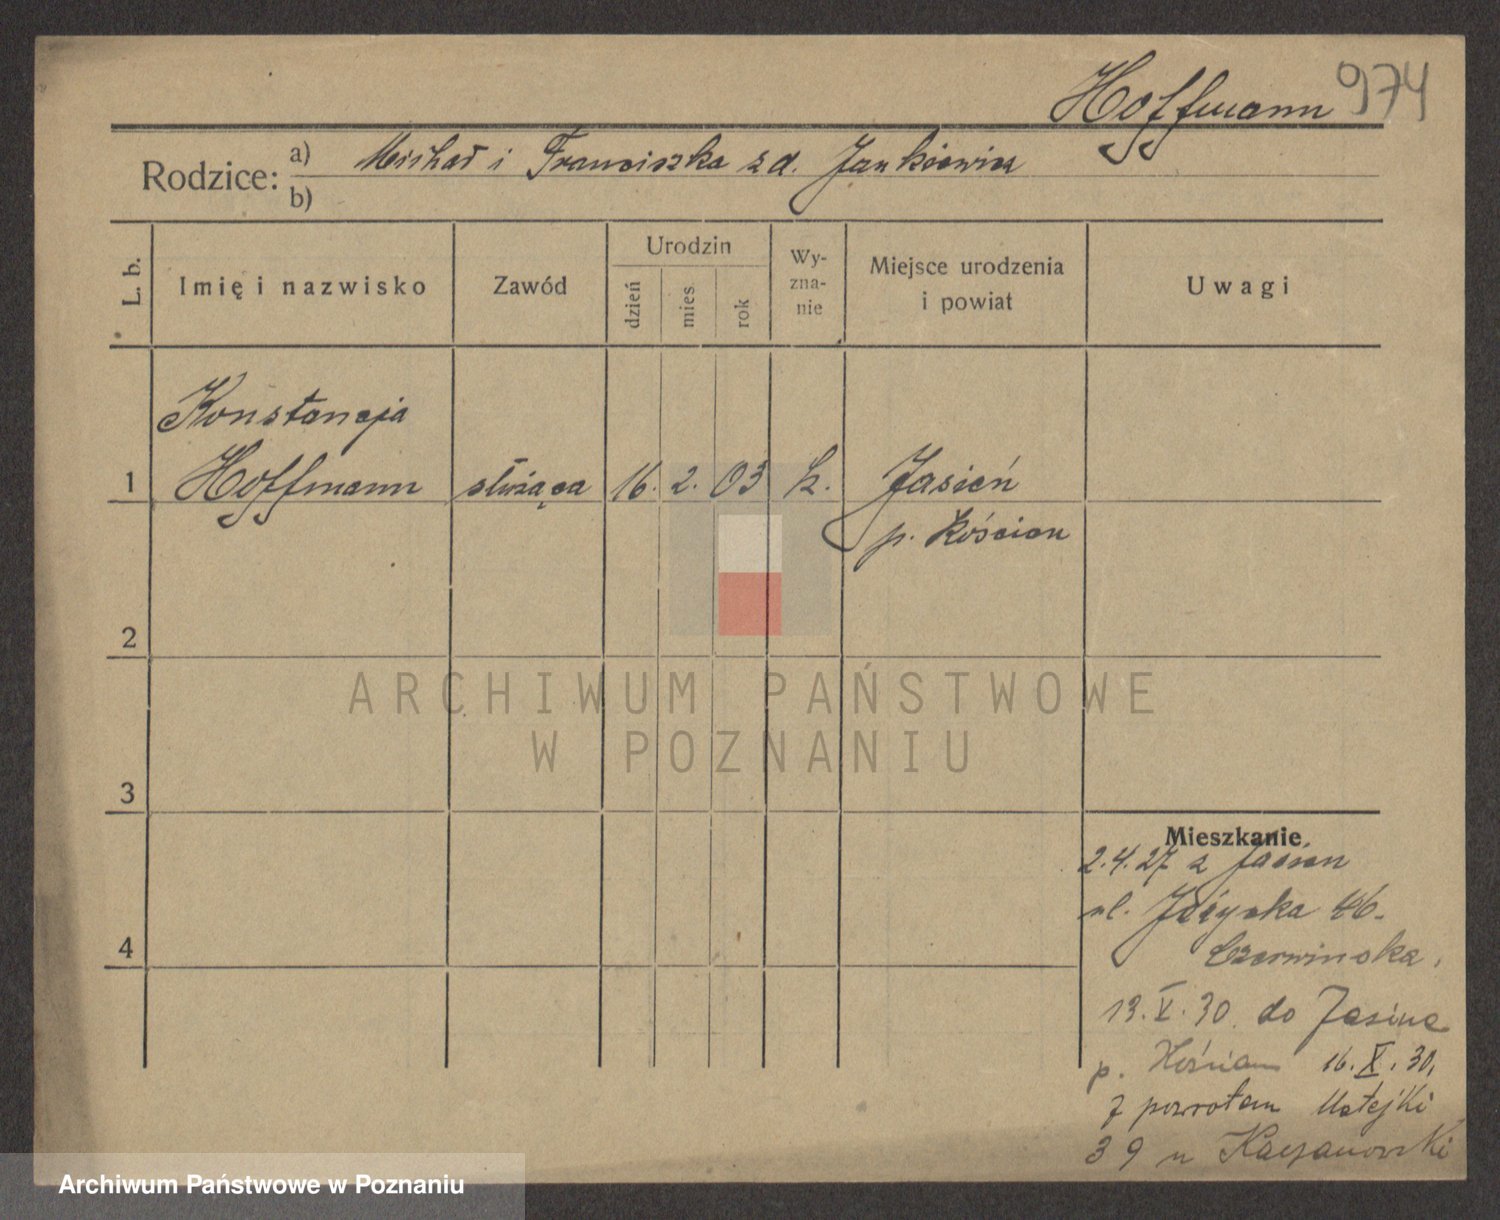 Hoffmann 974
Rodzice: a) Michał i Franciszka z d. Jankiewicz
b)
L. b.
Imię i nazwisko
Zawód
Urodzin
dzień
mies
rok
Wy-
zna-
nie
Miejsce urodzenia
i powiat
Uwagi
Konstancja
1 Hoffmann służąca 16. 2. 03 k. Jasień
p. Kościan
2
3
4
Mieszkanie
2.4.27 z Jasien
ul. 46.
Czerwinska,
13.V.30. do Jasine
p. Kościan 16.X.30,
z powrotem Matejki
39 u Kaczanowski
ARCHIWUM PAŃSTWOWE
W POZNANIU
Archiwum Państwowe w Poznaniu